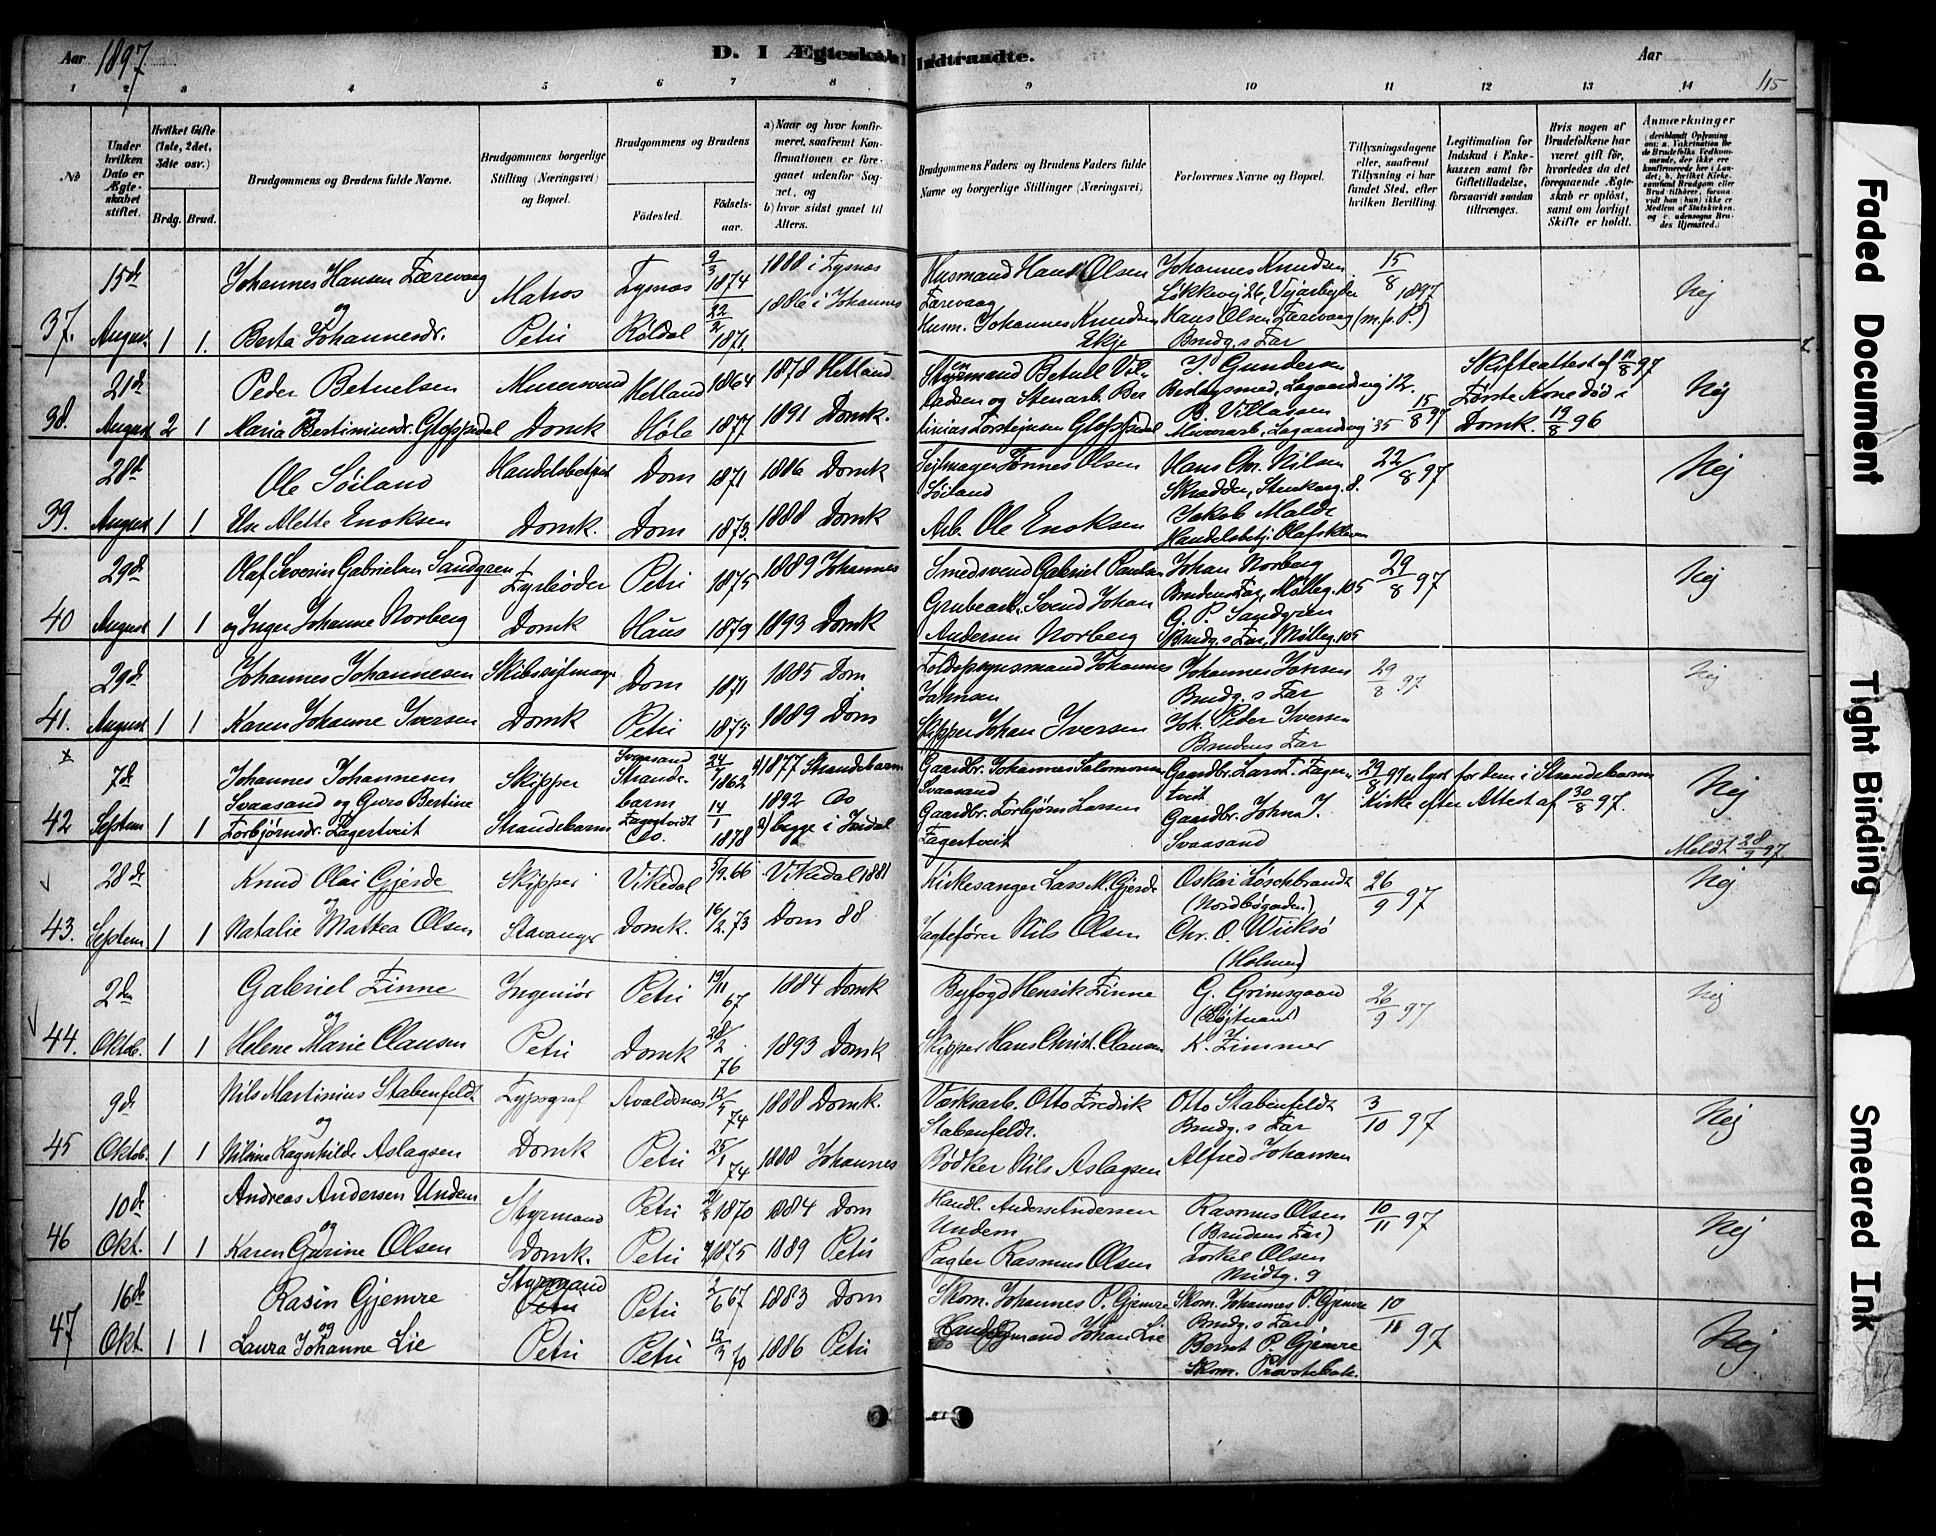 Aar 1897
D. I Ægteskab Indtraadte.
Aar
115
1 2 3 4 5 6 7 8 9 10 11 12 13 14
No
Under hvilken Dato er Ægteskabet stiftet.
Hvilket Gifte (1ste, 2det, 3die osv.)
Brdg. Brud.
Brudgommens og Brudens fulde Navne.
Brudgommens borgerlige Stilling (Næringsvei) og Bopæl.
Brudgommens og Brudens
Fødested.
Fødselsaar.
a) Naar og hvor konfirmeret, saafremt Konfirmationen er foregaaet udenfor Sognet, og
b) hvor sidst gaaet til Alters.
Brudgommens Faders og Brudens Faders fulde Navne og borgerlige Stillinger (Næringsvei)
Forlovernes Navne og Bopæl.
Tillysningsdagene eller, saafremt Tillysning ei har fundet Sted, efter hvilken Bevilling.
Legitimation for Indskud i Enkekassen samt for Giftetilladelse, forsaavidt saadan tiltrænges.
Hvis nogen af Brudefolkene har været gift før, hvorledes da det foregaaende Ægteskab er opløst, samt om lovligt Skifte er holdt.
Anmærkninger
37. 15de August. 1 1. Johannes Hansen Færevaag og Berta Johannesdr. Matros Petri Tysnæs Røldal 9/3 1874 22/2 1871. 1888 i Tysnæs 1886 i Johannes Husmand Hans Olsen Færevaag Husm. Johannes Knudsen Ekje Johannes Knudsen Løkkevej 26, Vejarbejder Hans Olsen Færevaag (m.p.P.) Brudg.s Far 15/8 1897 Nej
38. 21de August 2 1 Peder Betuelsen og Maria Bertiniusdr. Gloppedal Murersvend Domk Hetland Høle 1864 1877 1878 Hetland 1891 Domk. Betuel Villadsen og Stenarb. Bertinius Torstejnsen Gloppedal J. Gundersen Beslagsmed, Lagaardsvej 12. B. Villassen Murerarb., Lagaardsvej 35 15/8 97 Skifteattest af 11/8 97 Første Kone død i Domk. 19/8 96 Nej
39. 28de August 1 1 Ole Søiland Else Alette Enoksen Handelsbetjent Domk. Dom Dom 1871 1873. 1886 Domk 1888 Domk Sejlmager Tønnes Olsen Søiland Arb. Ole Enoksen Hans Chr. Nilsen Skrædder, Stenkarg. 8. Jakob Malde Handelsbetj. Olafskleven 22/8 97 Nej
40 29de August 1 1 Olaf Severin Gabrielsen Sandgren og Inger Johanne Norberg Fyrbøder Domk Petri Haus 1875 1879 1889 Johannes 1893 Domk Smedsvend Gabriel Paulsen Grubearb. Svend Johan Andersen Norberg Johan Norberg Brudens Far, Mølleg. 105 G. P. Sandgren Brudg.s Far, Mølleg. 105 29/8 97 Nej
41. 29de August 1 1 Johannes Johannesen Karen Johanne Iversen Skibssejlmager Domk Dom Petri 1871 1875 1885 Dom 1889 Dom Toldopsynsmand Johannes Jahnsen Skipper Johan Iversen Johannes Jansen Brudg.s Far Joh. Peder Iversen Brudens Far 29/8 97 Nej
42 7de Septem 1 1 Johannes Johannesen Svaasand og Guro Bertine Torbjørnsdr. Fagertveit Skipper Strandebarm Svaasand Strandebarm Fagertveidt Do. 24/7 1862 14/1 1878 a) 1877 Strandebarm 1892 Do b) begge i Jondal Gaardbr. Johannes Salomonsen Svaasand Gaardbr. Torbjørn Larsen Fagertveit Gaardbr. Lars T. Fagertveit Gaardbr. Johns J. Svaasand 29/8 97 er lyst for dem i Strandebarm Kirke efter Attest af 30/8 97. Nej Meldt 28/9 97.
43. 28de Septem. 1 1 Knud Olai Gjerde og Natalie Mattea Olsen Skipper Stavanger Vikedal Domk. 5/9.66 16/2.73 Vikedal 1881 Dom 88 Kirkesanger Lars M. Gjerde Jagtefører Nils Olsen Oskar Løschbrandt (Nordbøgaden) Chr. O. Wicksö (Holmen) 26/9 97 Nej
44. 2den Oktob. 1 1 Gabriel Finne og Helene Marie Clausen Ingeniør Petri Petri Domk 19/11 67 28/2 76 1884 Domk 1893 Domk Byfogd Henrik Finne Skipper Hans Christ. Clausen G. Grimsgaard (Løjtnant) K. Zimmer 26/9 97 Nej
45 9de Oktob. 1 1 Nils Martinius Stabenfeldt og Niline Ragnhilde Aslagsen Typograf Domk Avaldsnæs Petri 12/5 74 25/1 74 1888 Domk. 1888 Johannes Værksarb. Otto Fredrik Stabenfeldt. Bødker Nils Aslagsen Otto Stabenfeldt Brudg.s Far Alfred Johansen 3/10 97 Nej
46 10de Okt. 1 1 Andreas Andersen Undem og Karen Gurine Olsen Styrmand Domk. Petri Petri 1870 1875 1884 Dom 1889 Petri Handl. Anders Andersen Undem Fagter Rasmus Olsen Rasmus Olsen (Brudens Far) Torkel Olsen Midtg. 9 10/11 97 Nej
47 16de Okt. 1 1 Rasin Gjemre og Laura Johanne Lie Styrmand Petri Petri Petri 2/6 67 12/3 70 1883 Dom 1886 Petri Skom. Johannes P. Gjemre Johan Lie Skom. Johannes P. Gjemre Brudg.s Far Bernt P. Gjemre Skom. Provstebak. 10/11 97 Nej
Faded Document
Tight Binding
Smeared Ink